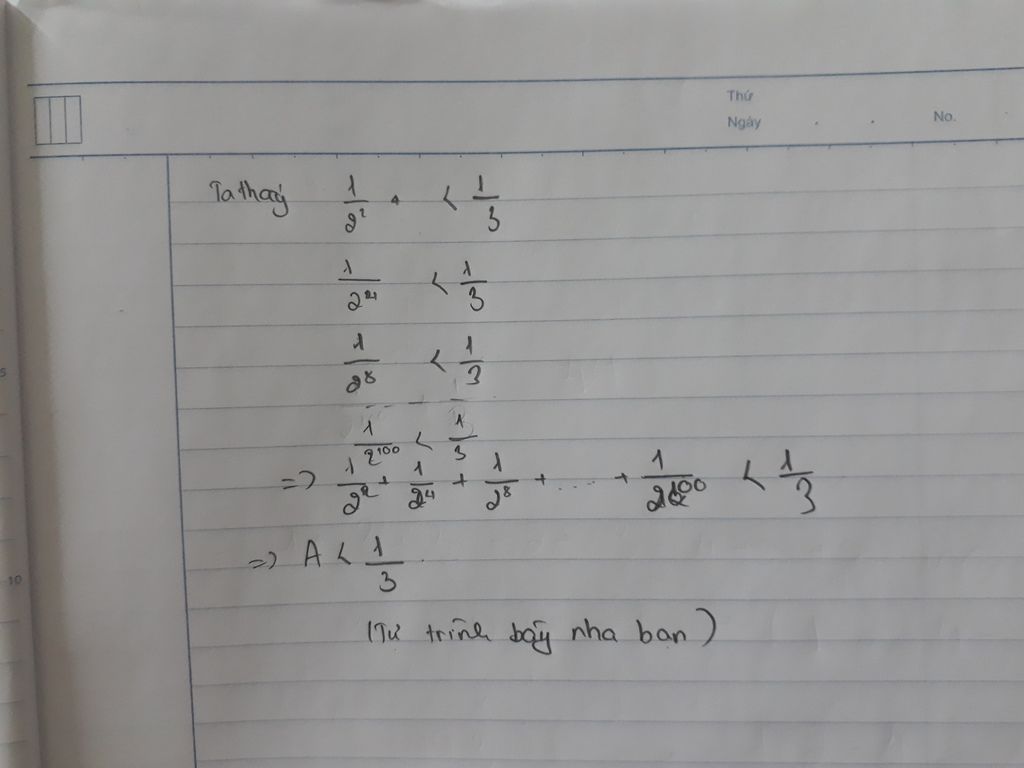 Thứ
Ngày . . No.
Ta thấy 1/2² < 1/3
1/2⁴ < 1/3
1/2⁸ < 1/3
1/2¹⁰⁰ < 1/3
=> 1/2² + 1/2⁴ + 1/2⁸ + .... + 1/2¹⁰⁰ < 1/3
=> A < 1/3
(Tự trình bầy nha bạn)
5
10